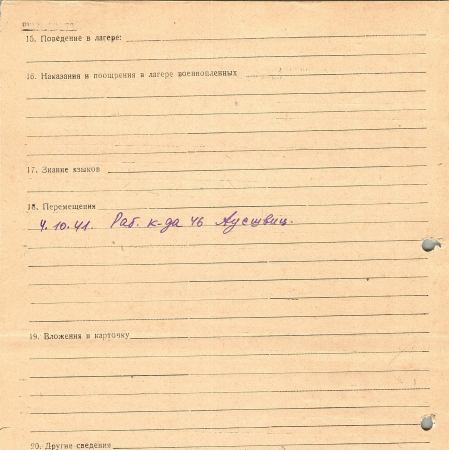 15. Поведение в лагере:
16. Наказания и поощрения в лагере военнопленных
17. Знание языков
18. Перемещения
4.10.41. Раб. к-да 46 Аусшвиц.
19. Вложения в карточку
20. Другие сведения